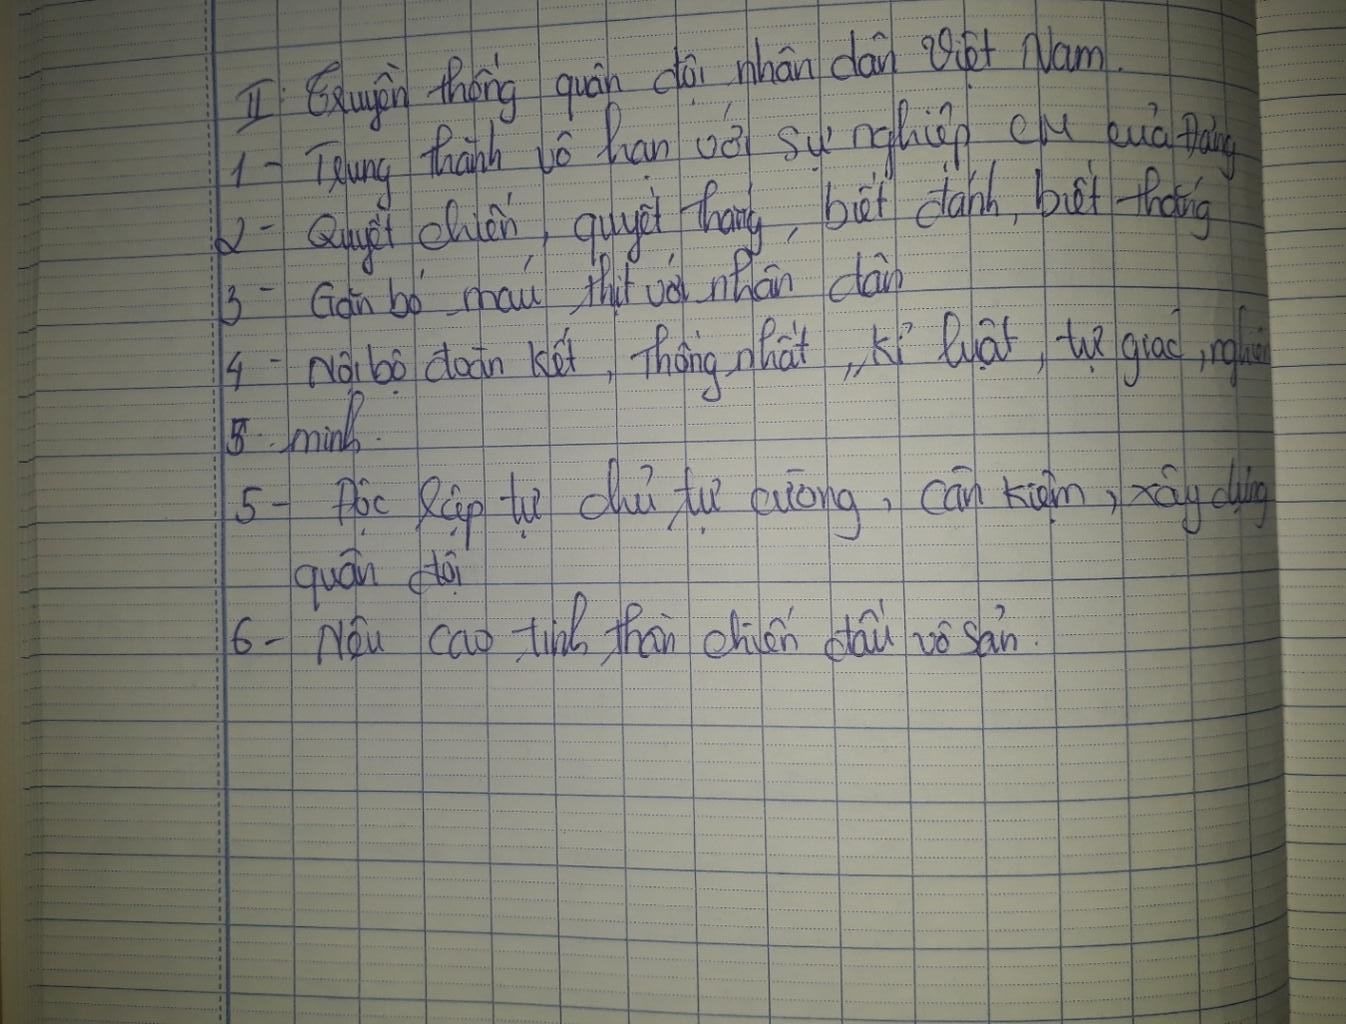 II. Truyền thống quân đội nhân dân Việt Nam.
1- Trung thành vô hạn với sự nghiệp CM của Đảng
2- Quyết chiến, quyết thắng, biết đánh, biết thắng
3- Gắn bó máu thịt với nhân dân
4- Nội bộ đoàn kết, thống nhất, kỉ luật, tự giác, nghiêm
5 minh.
5- Độc lập tự chủ tự cường, cần kiệm, xây dựng
quân đội
6- Nêu cao tinh thần chiến đấu vô sản.